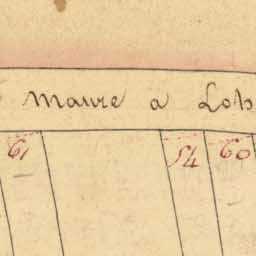 Maure a Loh
61 54 60